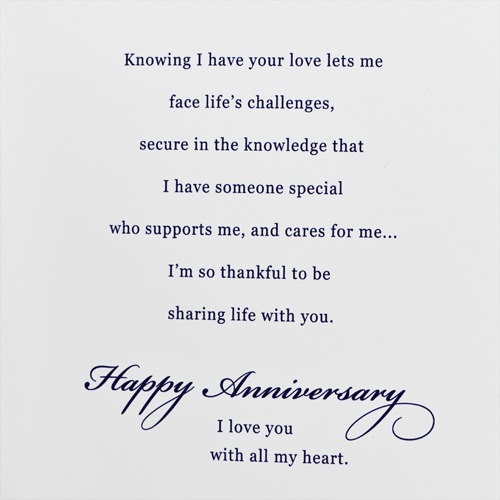 Knowing I have your love lets me
face life's challenges,
secure in the knowledge that
I have someone special
who supports me, and cares for me...
I'm so thankful to be
sharing life with you.
Happy Anniversary
I love you
with all my heart.